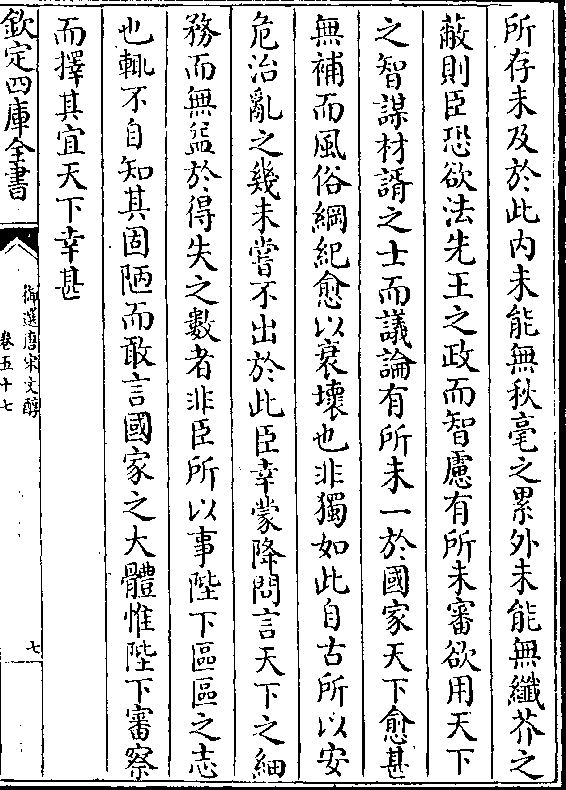 所存未及於此内未能無秋毫之累外未能無纖芥之
蔽則臣恐欲法先王之政而智慮有所未審欲用天下
之智謀材諝之士而議論有所未一於國家天下愈甚
無補而風俗綱紀愈以衰壞也非獨如此自古所以安
危治亂之幾未嘗不出於此臣幸蒙降問言天下之細
務而無益於得失之數者非臣所以事陛下區區之志
也輒不自知其固陋而敢言國家之大體惟陛下審察
而擇其宜天下幸甚
欽定四庫全書
御選唐宋文醇
卷五十七
七